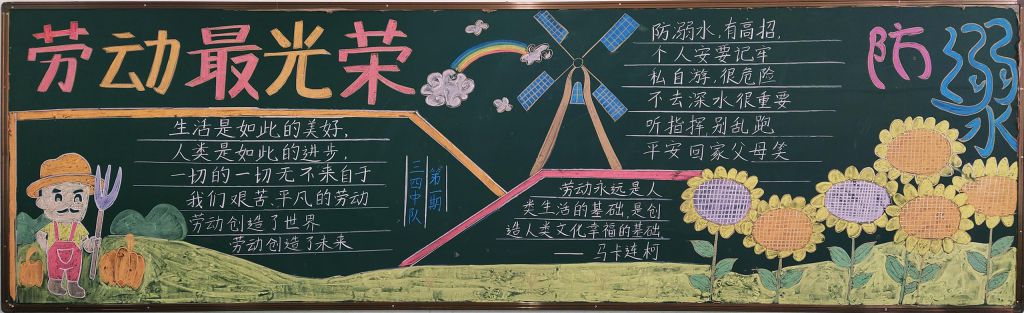 劳动最光荣
生活是如此的美好,
人类是如此的进步,
一切的一切无不来自于
我们艰苦、平凡的劳动
劳动创造了世界
劳动创造了未来
三四中队
第一期
防溺水,有高招,
个人安要记牢
私自游,很危险
不去深水很重要
听指挥别乱跑
平安回家父母笑
劳动永远是人
类生活的基础,是创
造人类文化幸福的基础
——马卡连柯
防溺水